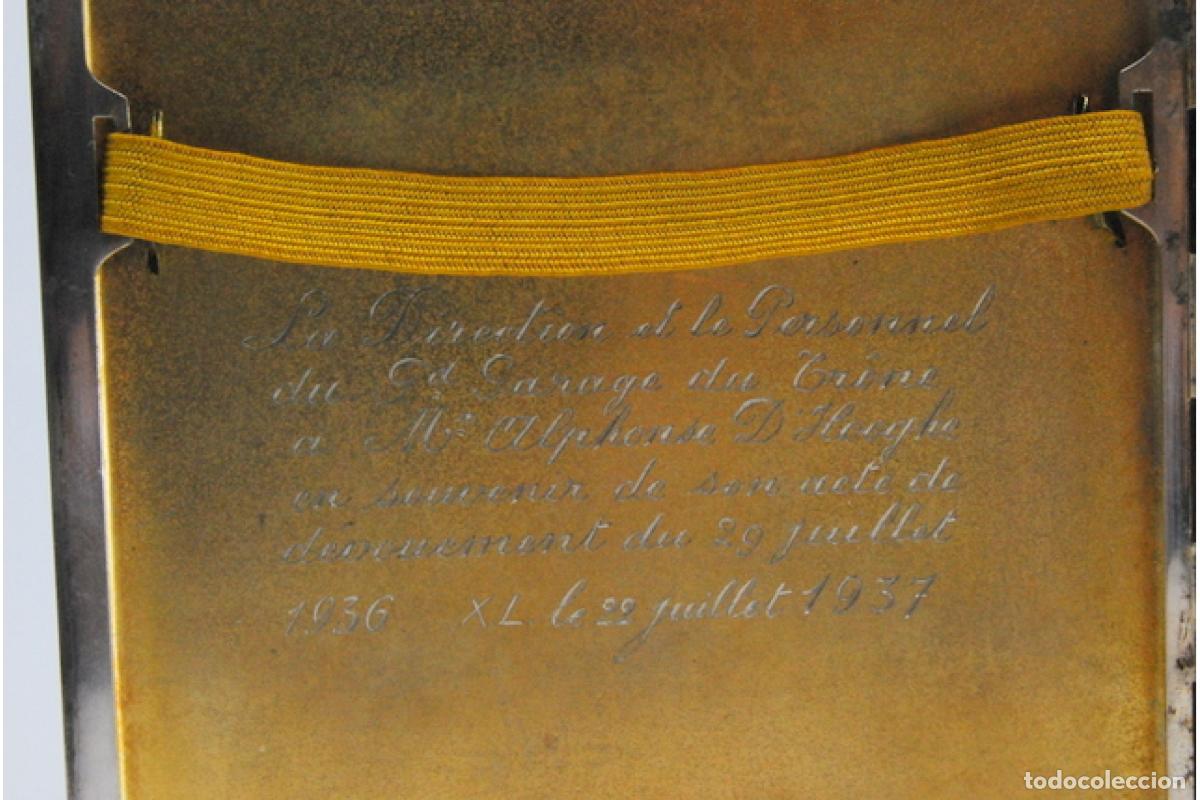 La Direction et le Personnel
du Gd Garage du Trône
a Mr Alphonse D'Hooghe
en souvenir de son acte de
dévouement du 29 juillet
1936 XL. le 22 juillet 1937
todocoleccion